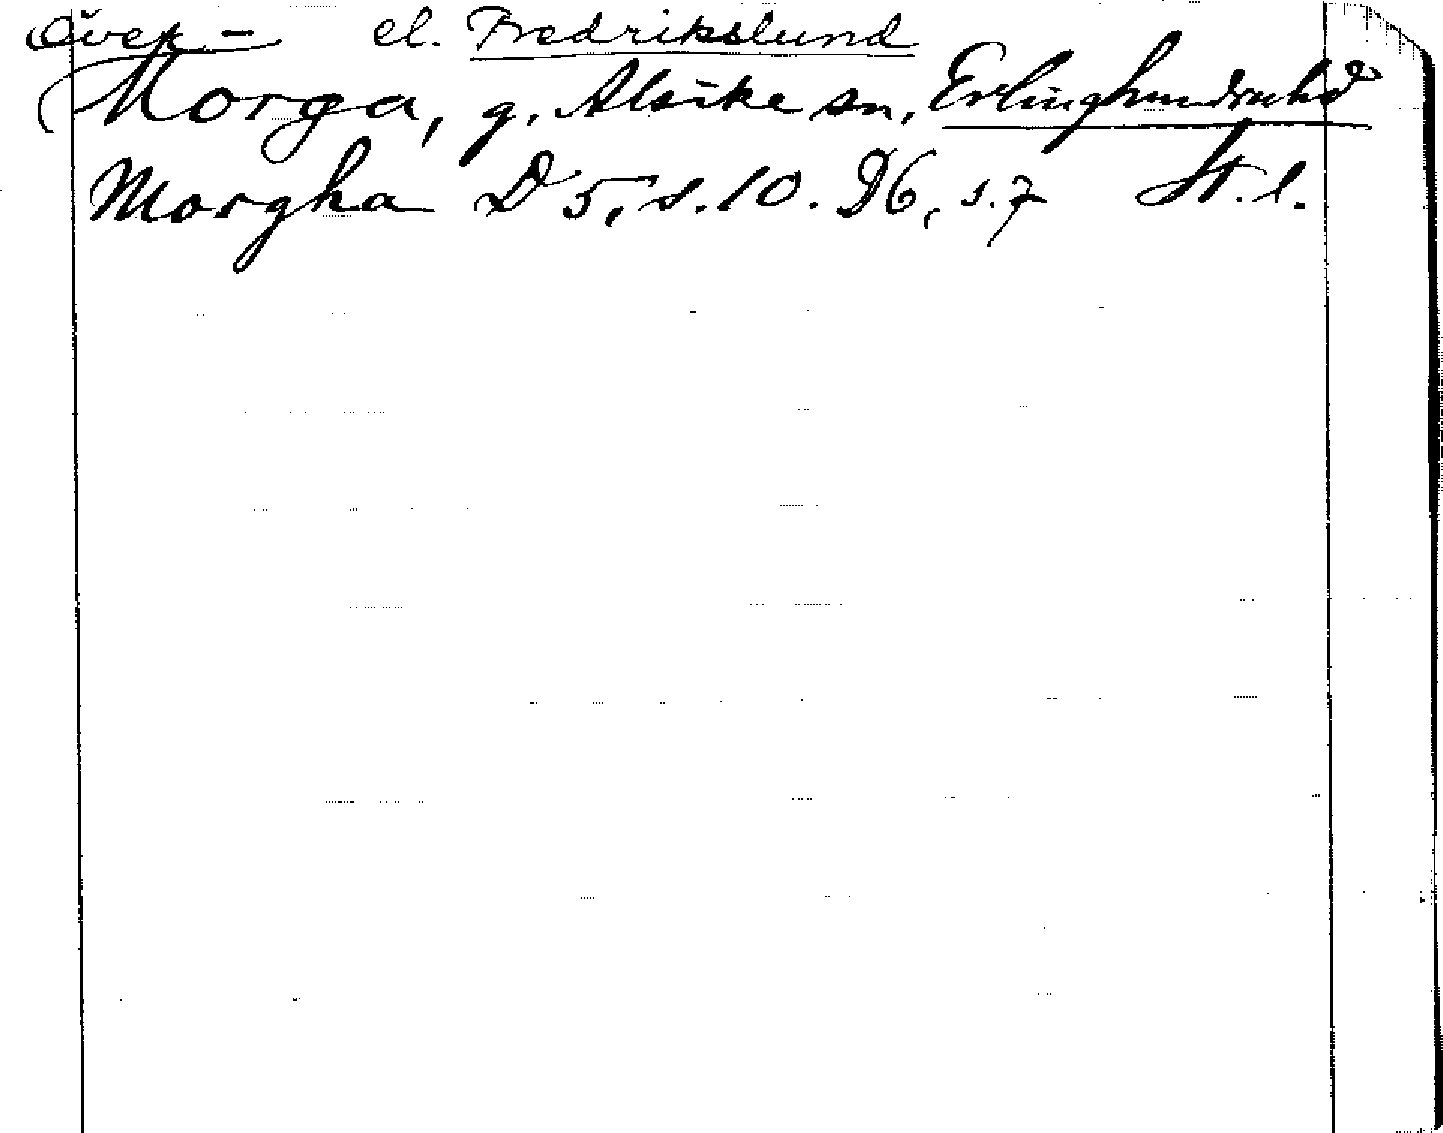 Över- el. Fredrikslund
Morga, g. Alsike sn, Erlinghundra hd
Morgha D 5, s. 10. D6, s. 7 St. l.